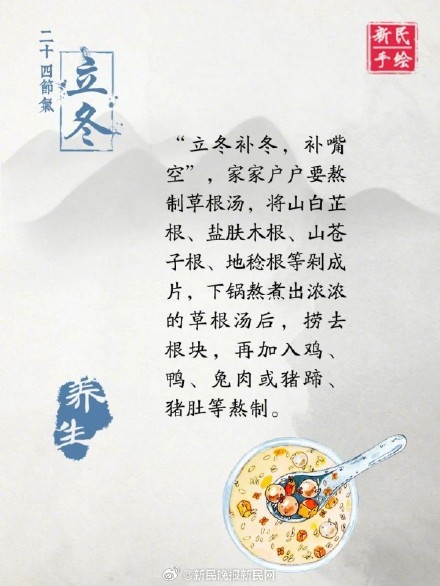 二十四節氣
立冬
新民
手绘
“立冬补冬，补嘴
空”，家家户户要熬
制草根汤，将山白芷
根、盐肤木根、山苍
子根、地稔根等剁成
片，下锅熬煮出浓浓
的草根汤后，捞去
根块，再加入鸡、
鸭、兔肉或猪蹄、
猪肚等熬制。
养生
@新民晚报新民网